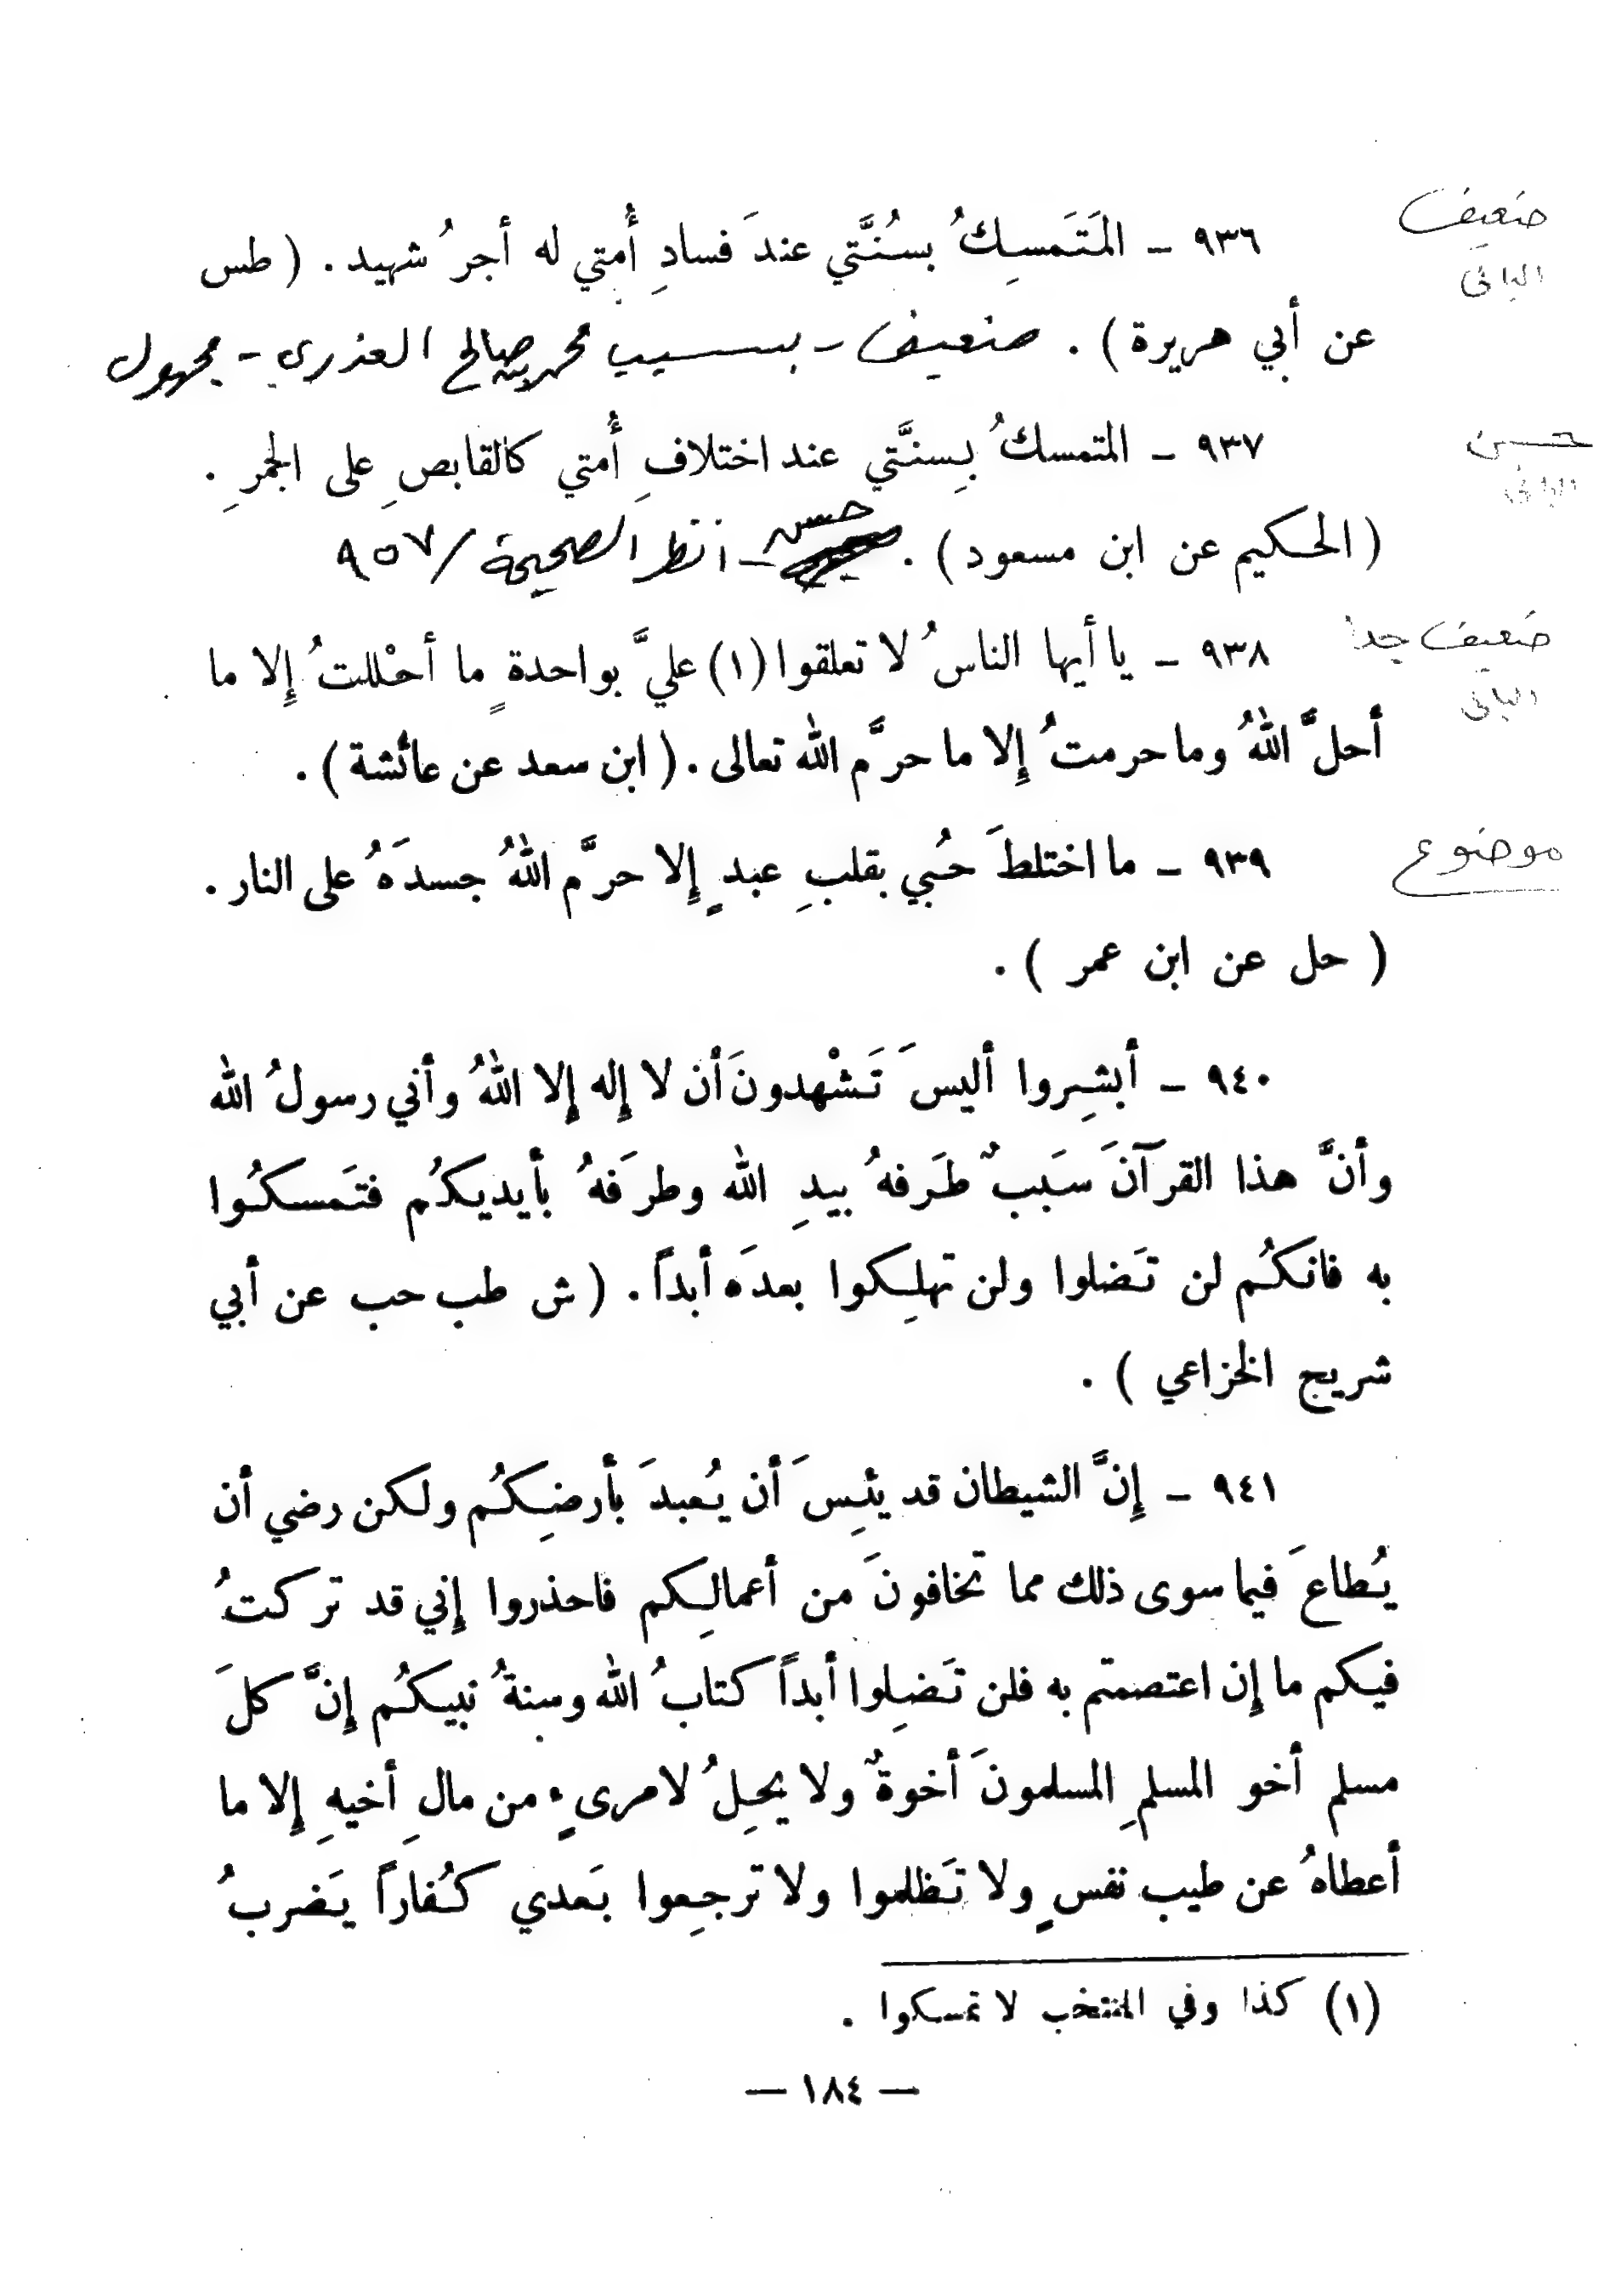 ضعيف
الباني
٩٣٦ ـ المَتَمسِكُ بسُنَّتي عندَ فسادِ أُمتي له أجرُ شهيد . ( طس
عن أبي هريرة ) . ضعيف ـ بسبب محمد بن صالح العذري ـ مجهول
حسن
الباني
٩٣٧ ـ المتمسكُ بِسنَّتي عند اختلافِ أُمتي كالقابصِ على الجمرِ .
( الحكيم عن ابن مسعود ) . حسن ـ انظر الصحيحة / ٩٥٧
ضعيف جداً
الباني
٩٣٨ ـ يا أيها الناسُ لا تعلقوا (١) عليَّ بواحدةٍ ما أحْللتُ إِلا ما
أحلَّ اللهُ وما حرمتُ إِلا ما حرَّم الله تعالى . ( ابن سعد عن عائشة ) .
موضوع
٩٣٩ ـ ما اختلطَ حُبي بقلبِ عبدٍ إِلا حرَّم اللهُ جسدَهُ على النار .
( حل عن ابن عمر ) .
٩٤٠ ـ أبشِروا أليسَ تَشْهدونَ أن لا إِله إِلا اللهُ وأني رسولُ الله
وأنَّ هذا القرآنَ سَببٌ طَرفهُ بيدِ الله وطرَفهُ بأيديكُم فتَمسكُوا
به فانكُم لن تَضلوا ولن تهلِكوا بعدَه أبداً . ( ش طب حب عن أبي
شريح الخزاعي ) .
٩٤١ ـ إِنَّ الشيطان قد يئِسَ أن يُعبدَ بأرضِكُم ولكن رضي أن
يُطاعَ فيما سوى ذلك مما تخافونَ من أعمالِكم فاحذروا إِني قد تركتُ
فيكم ما إِن اعتصمتم به فلن تَضِلوا أبداً كتابُ الله وسنةُ نبيكُم إِنَّ كلَ
مسلم أخو المسلمِ المسلمونَ أخوةٌ ولا يحِلُ لامرىءٍ من مالِ أخيهِ إِلا ما
أعطاهُ عن طيب نفسٍ ولا تَظلموا ولا ترجِعوا بَعدي كُفاراً يَضربُ
(١) كذا وفي المنتخب لا تمسكوا .
— ١٨٤ —